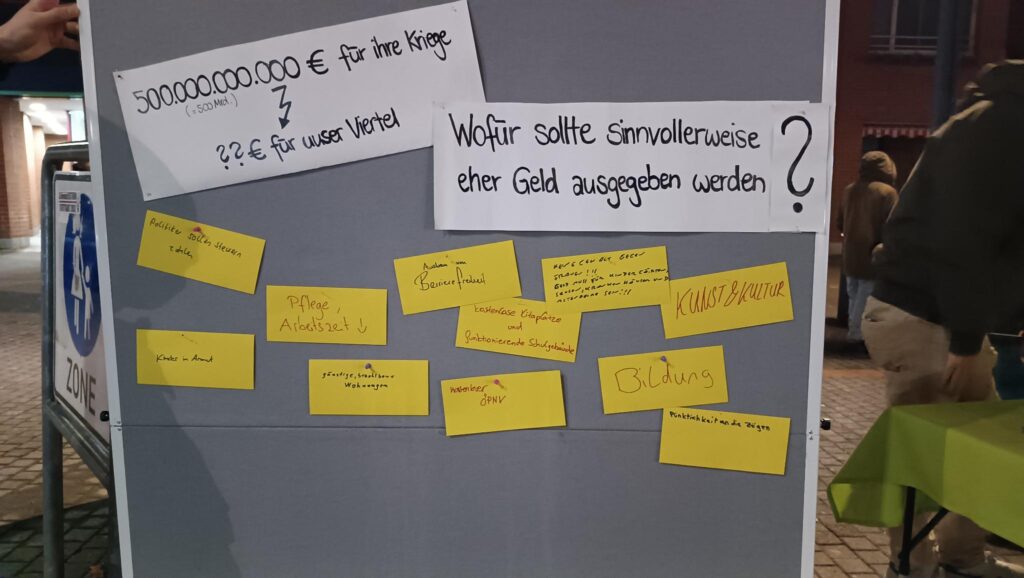 500.000.000.000 € für ihre Kriege
(=500 Mrd.)
??€ für unser Viertel
Wofür sollte sinnvollerweise
eher Geld ausgegeben werden ?
Politiker sollen Steuern
zahlen
Pflege,
Arbeitszeit ↓
Ausbau von
Barrierefreiheit
kostenlose Kitaplätze
und
funktionierende Schulgebäude
GELD
KUNST & KULTUR
in Armut
günstige, bezahlbare
Wohnungen
kostenloser
ÖPNV
Bildung
Pünktlichkeit an die Zügen
ZONE